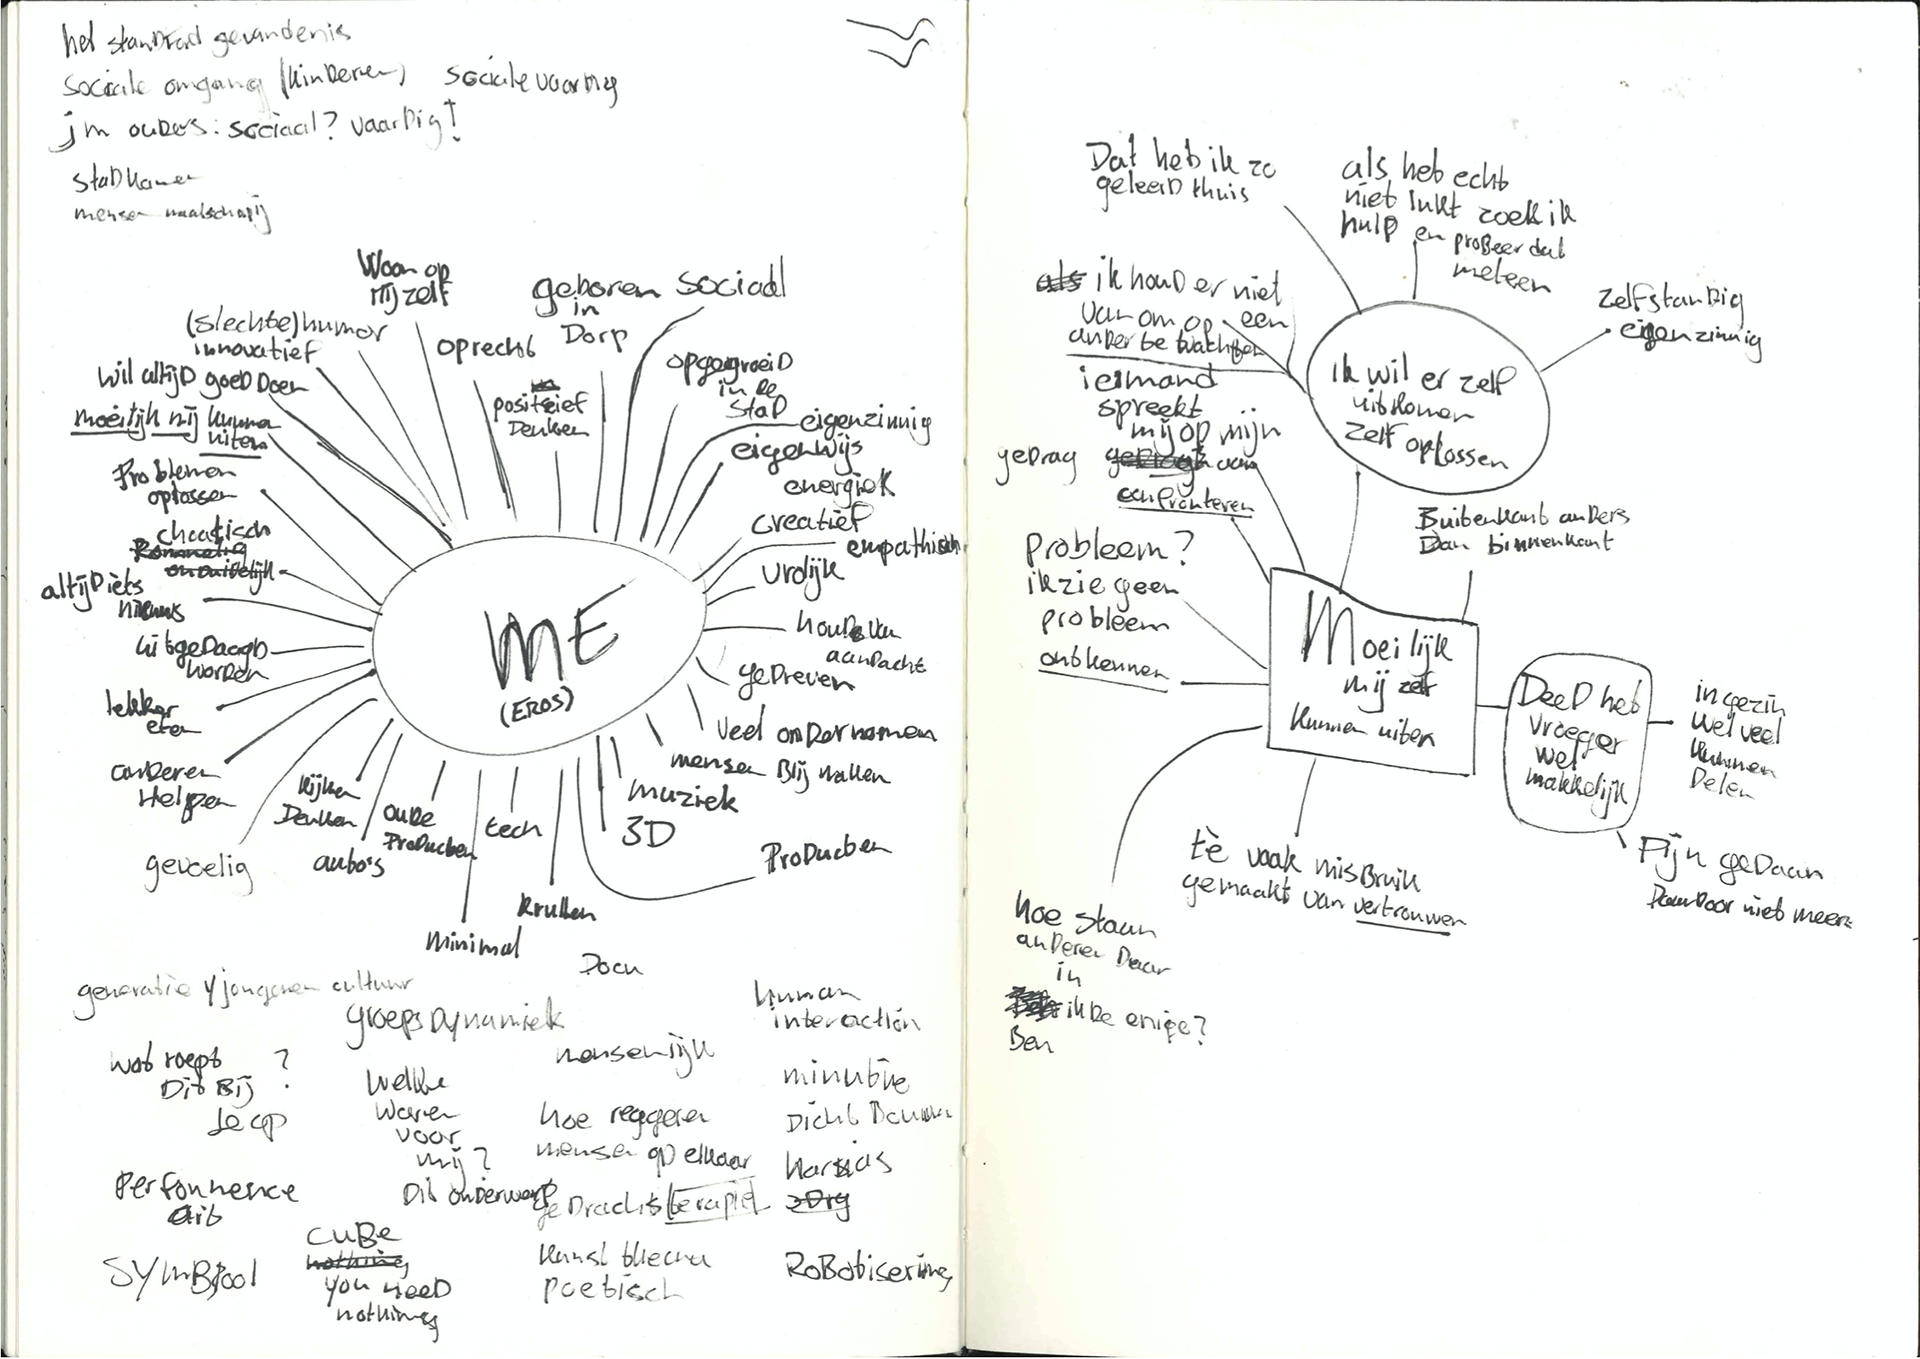 het standaad gevandenis
sociale omgang (kinderen) sociale vaardig
jm ouders: sociaal? vaardig!
stadkamer
mensen maatschapij
Woon op
mij zelf
geboren
in
Dorp
sociaal
(slechte) humor
innovatief
oprecht
opgegroeid
in de
stad
wil altijd goed doen
positief
Denken
eigenzinnig
moeilijk mij kunnen
uiten
eigenwijs
energiek
Problemen
oplossen
creatief
empathisch
chaotisch
Rommelig
onduidelijk
vrolijk
altijd iets
nieuws
houd van
aandacht
uitgedaagd
worden
gedreven
ME
(EROS)
lekker
eten
veel ondernomen
mensen Blij maken
anderen
Helpen
kijken
Denken
oude
Producten
tech
muziek
3D
gevoelig
auto's
Producten
krullen
minimal
Docu
generatie y jongeren cultuur
groepsdynamiek
human
interaction
wat roept ?
Dit Bij
Je op
menselijk
welke
waren
voor
mij?
minutie
hoe reggeren
mensen op elkaar
Dicht Bouwen
Performence
art
Dit onderwerp
gedrachts terapie
harses
zorg
SYMBool
CUBE
nothing
you need
nothing
kunst
poetisch
RoBotisering
Dat heb ik zo
geleerd thuis
als het echt
niet lukt zoek ik
hulp en probeer dat
meteen
als ik houd er niet
van om op een
ander te wachten
zelfstandig
eigenzinnig
ik wil er zelf
uitkomen
zelf oplossen
iemand
spreekt
mij op mijn
gedrag gedragh aan
confronteren
Buitenkant anders
Dan binnenkant
probleem?
ik zie geen
probleem
ontkennen
Moeilijk
mij zelf
kunnen uiten
Deed het
vroeger
wel
makkelijk
in gezin
wel veel
kunnen
Delen
Pijn gedaan
Daardoor niet meer
tè vaak misbruik
gemaakt van vertrouwen
hoe staan
anderen daar
in
ik de enige?
Ben